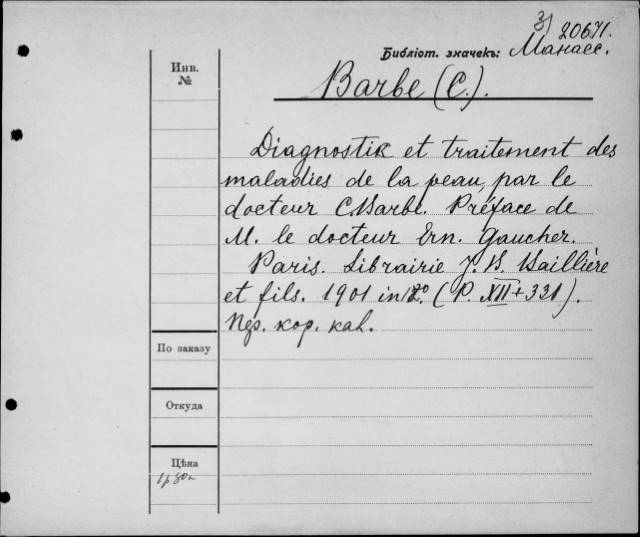 3) 20671.
Библіот. значекъ: Манасс.
Инв. №
Barbe (C.).
Diagnostik et traitement des
maladies de la peau, par le
docteur C. Barbe. Préface de
M. le docteur Ern. Gaucher.
Paris. Librairie J. B. Baillière
et fils. 1901 in 12º. (P. XII+331).
Пер. кор. кал.
По заказу
Откуда
Цѣна